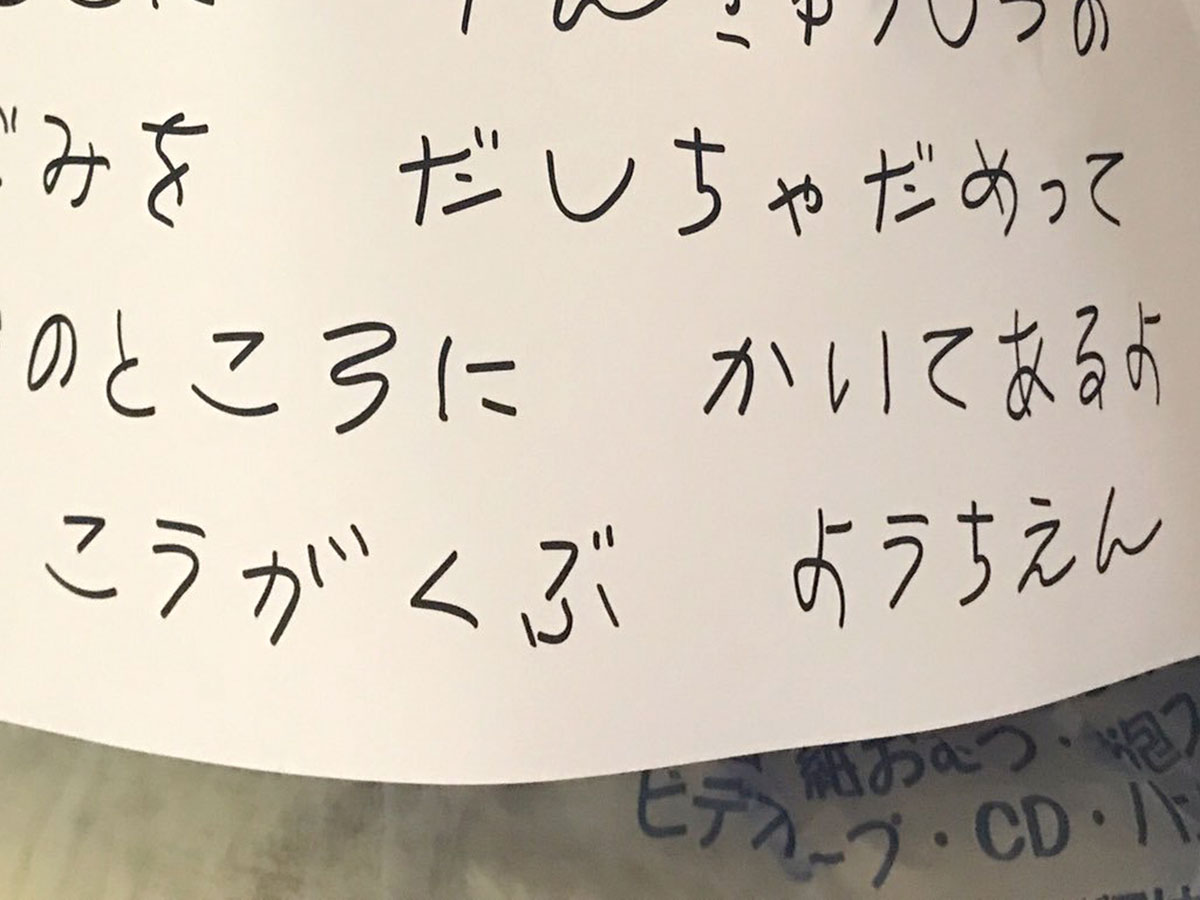 けんきゅうしつの
ごみを だしちゃだめって
のところに かいてあるよ
こうがくぶ ようちえん
紙おむつ・泡
ビデオ ープ・CD・バ